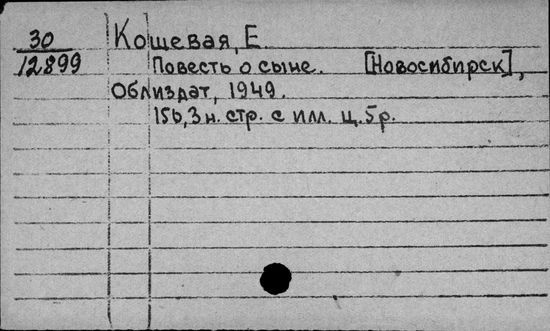 30 Кошевая, Е
12899 Повесть о сыне. [Новосибирск],
Облиздат, 1949.
156, 3 н. стр. с илл. ц. 5 р.